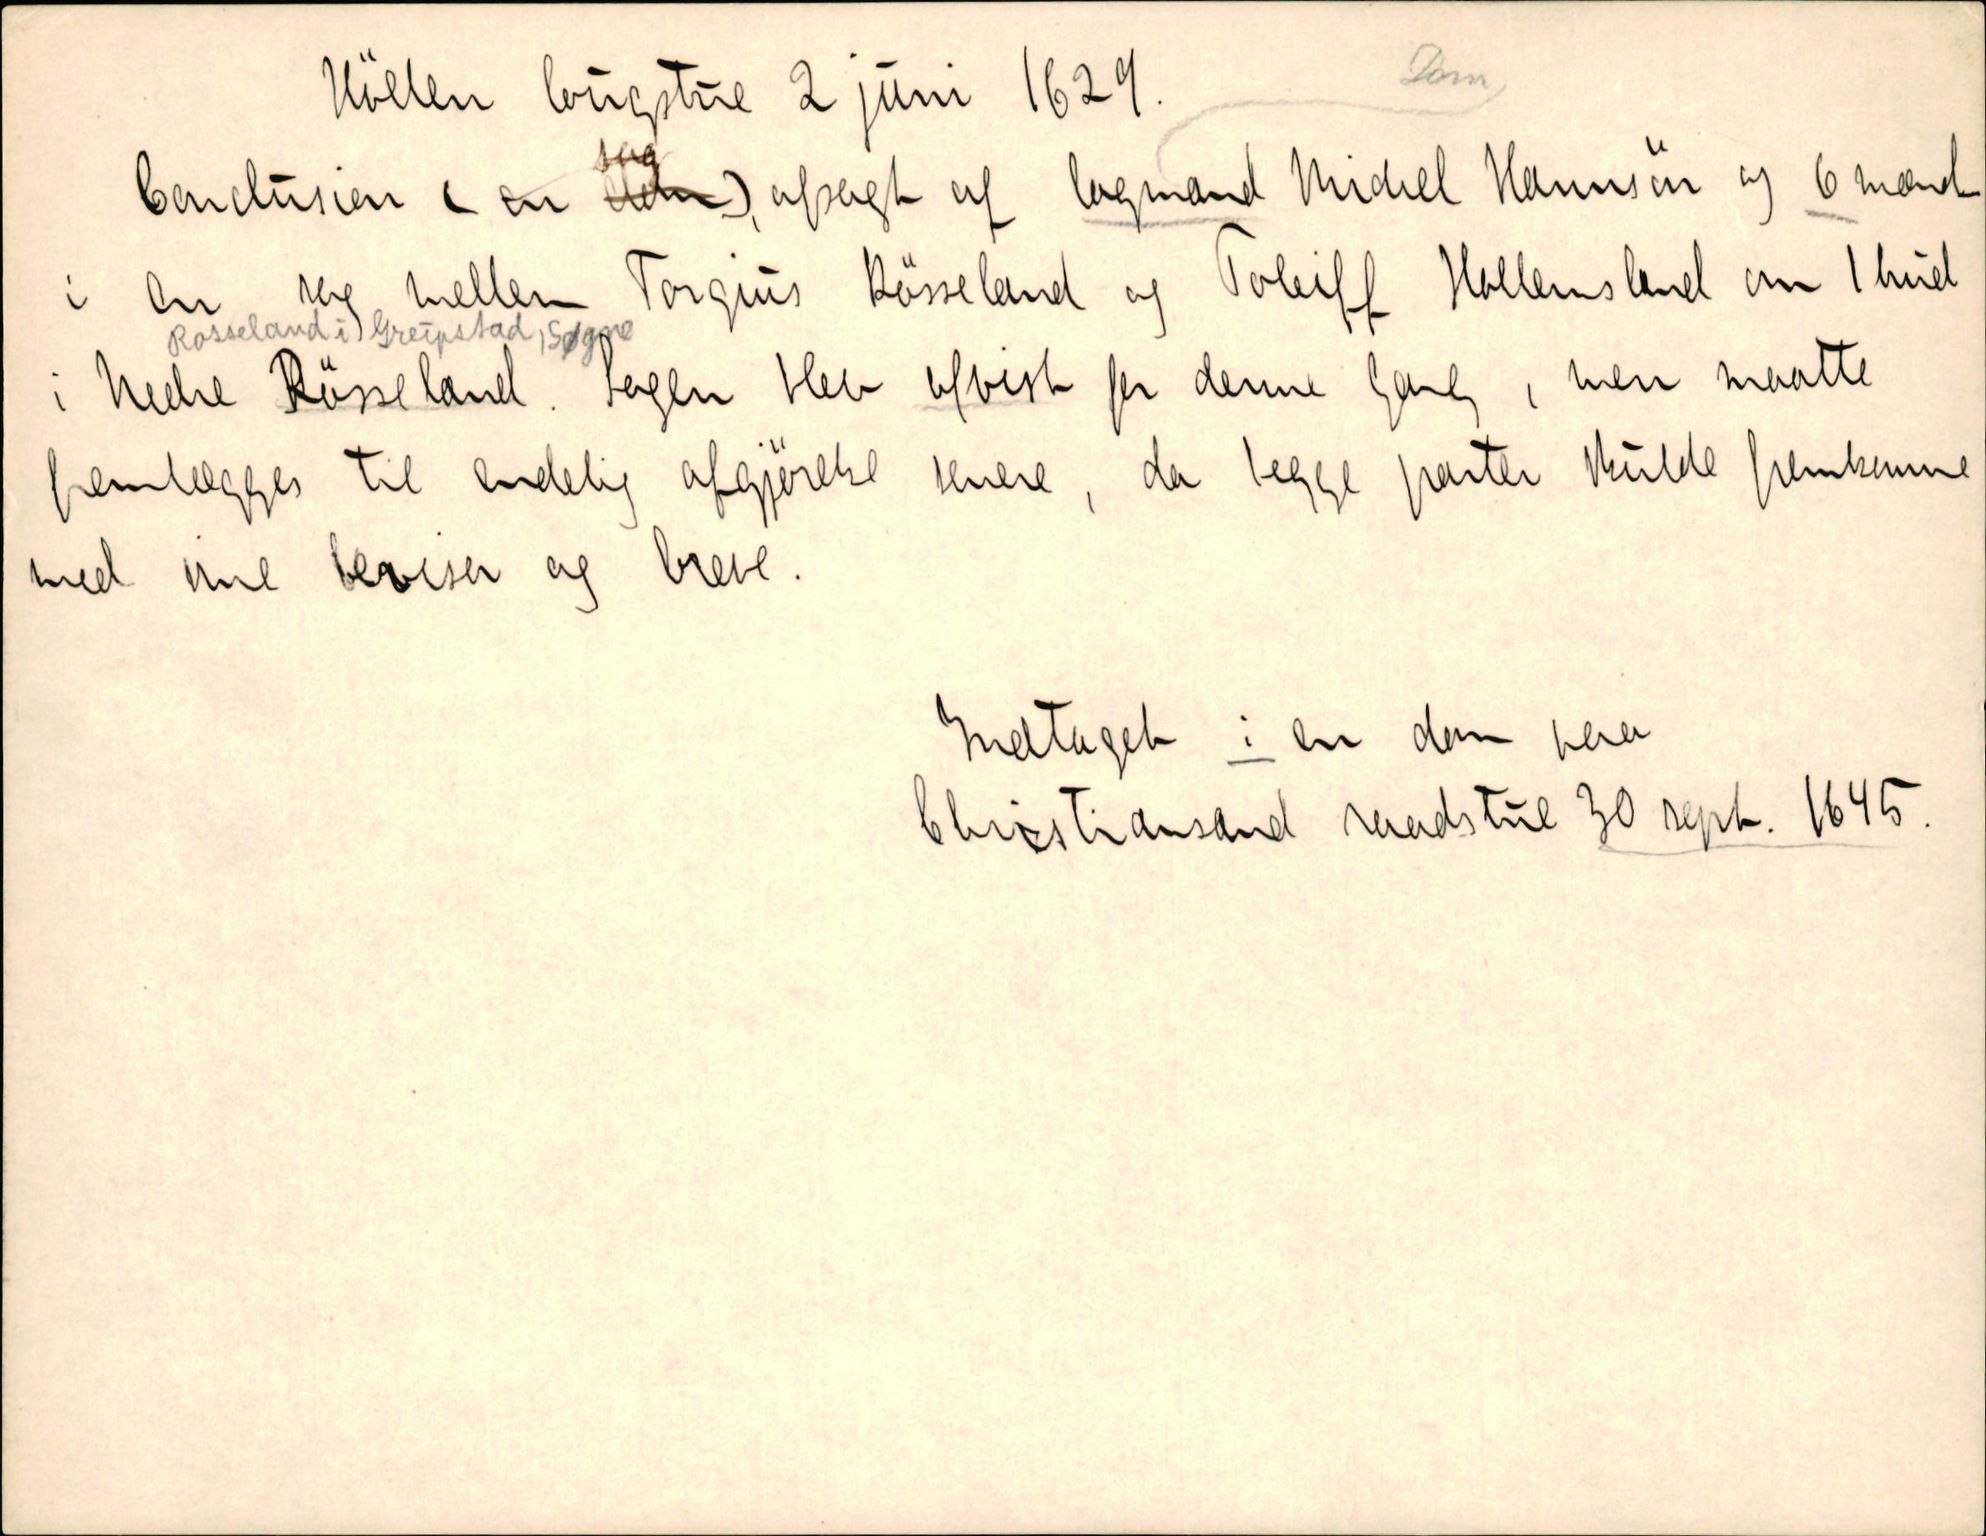 Dom
Höllen lougstue 2 juni 1629.
sag
Conclusion (en dom), afsagt af lagmand Michel Hannsön og 6 mænd
i en sag mellem Torgius Rösseland og Toleiff Hollensland om 1 hud
Rosseland i Greipstad, Søgne
i Nedre Rösseland. Sagen blev afvist for denne gang, men maatte
fremlægges til endelig afgjörelse senere, da begge parter skulde fremkomme
med sine beviser og breve.
Indtaget i en dom paa
Christiansand raadstue 30 sept. 1645.